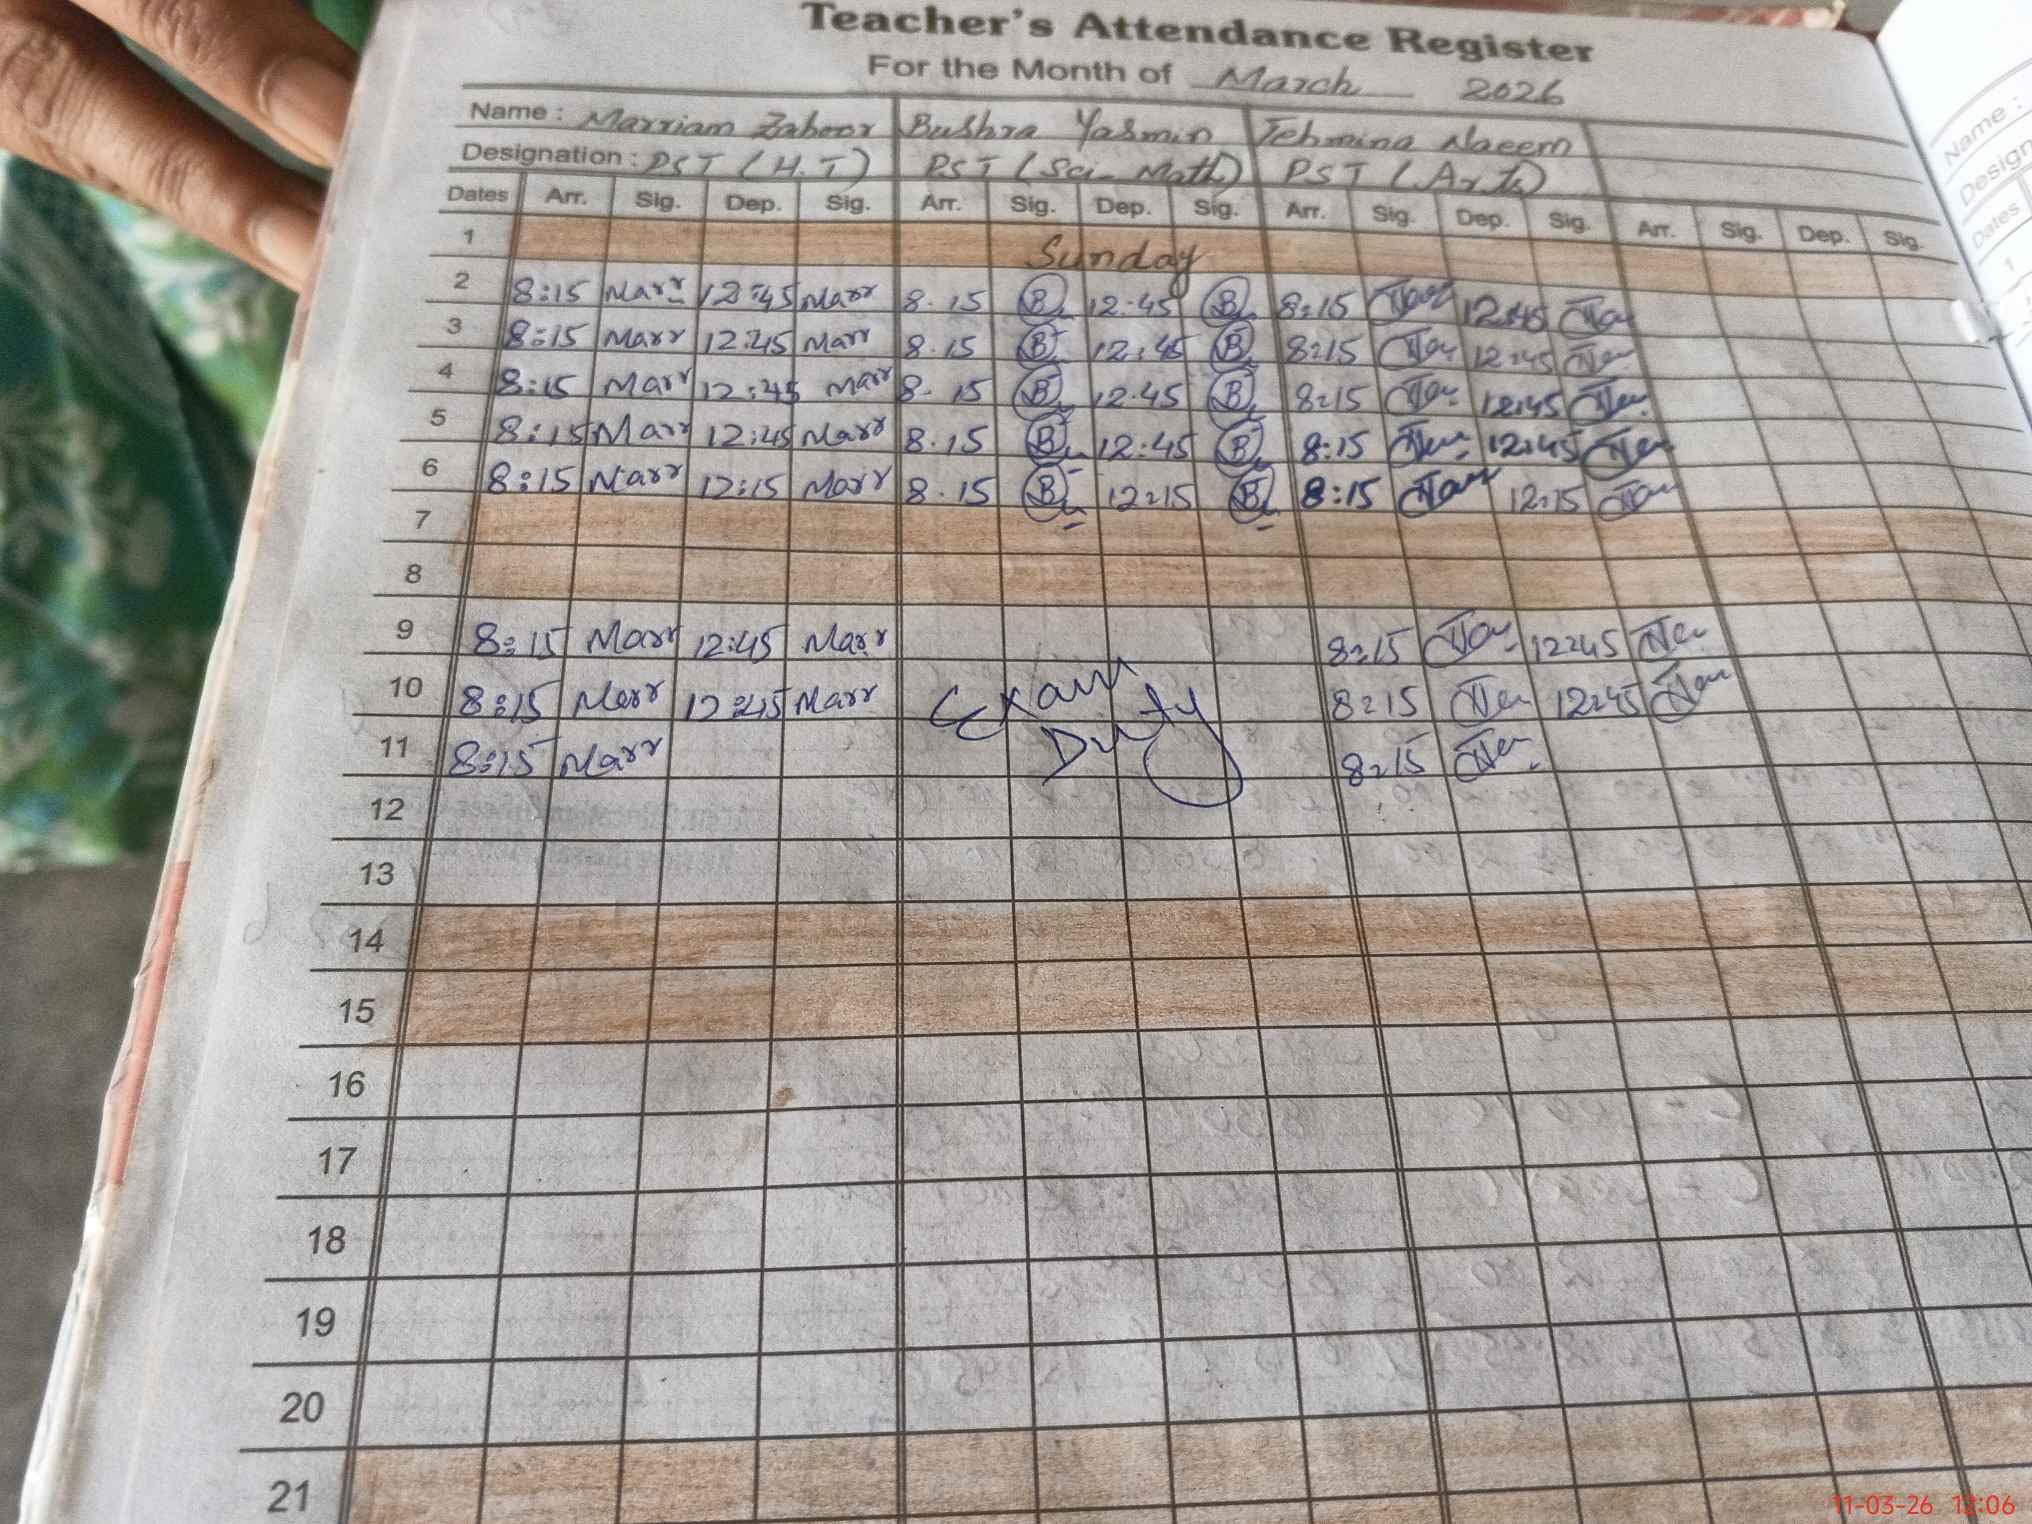 Teacher's Attendance Register
For the Month of March 2026
Name : Marriam Zahoor Bushra Yasmin Tehmina Naeem
Designation : PST (H.T) PST (Sci- Math) PST (Arts)
Dates Arr. Sig. Dep. Sig. Arr. Sig. Dep. Sig. Arr. Sig. Dep. Sig. Arr. Sig. Dep. Sig.
1 Sunday
2 8:15 Marr 12:45 Marr 8.15 B 12.45 B 8:15 12:45
3 8:15 Marr 12:45 Marr 8.15 B 12:45 B 8:15 12:45
4 8:15 Marr 12:45 Marr 8.15 B 12.45 B 8:15 12:45
5 8:15 Marr 12:45 Marr 8.15 B 12:45 B 8:15 12:45
6 8:15 Marr 12:15 Marr 8.15 B 12:15 B 8:15 12:15
7
8
9 8:15 Marr 12:45 Marr 8:15 12:45
10 8:15 Marr 12:45 Marr Exam 8:15 12:45
11 8:15 Marr Duty 8:15
12
13
14
15
16
17
18
19
20
21
Name :
Design
Dates
1
11-03-26 12:06